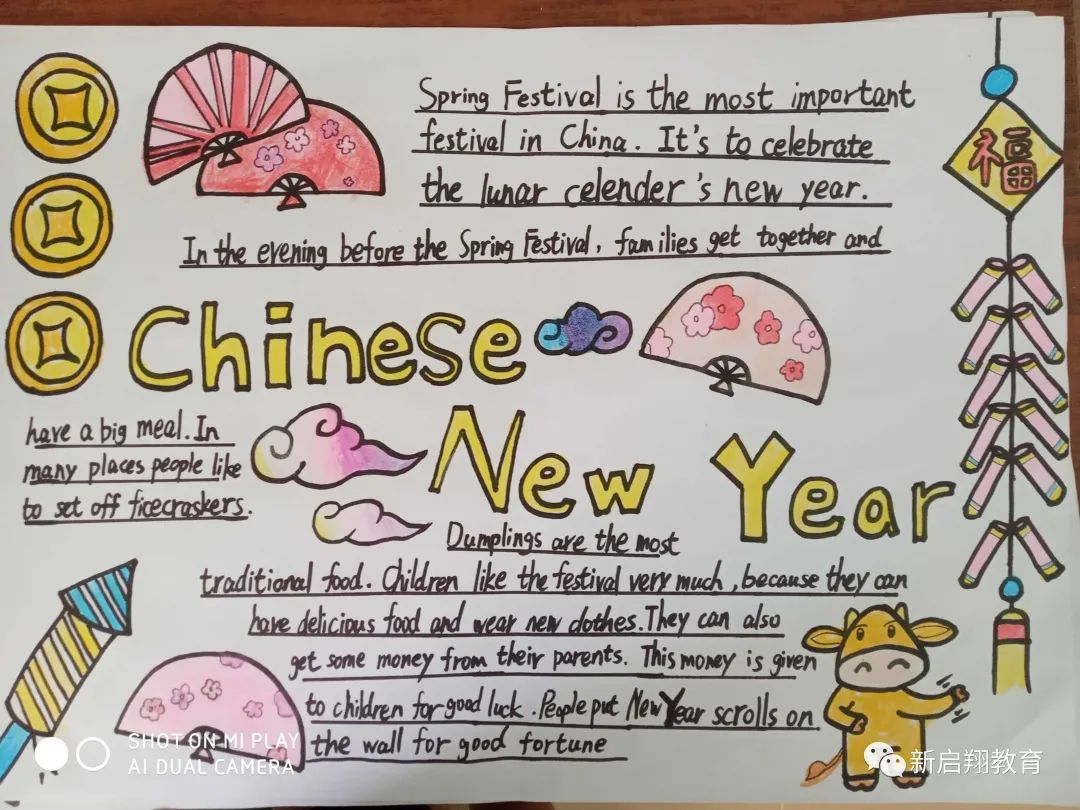 Spring Festival is the most important
festival in China. It's to celebrate
the lunar celender's new year.
福
In the evening before the Spring Festival, families get together and
Chinese
have a big meal. In
many places people like
to set off ficecraskers.
New Year
Dumplings are the most
traditional food. Children like the festival very much, because they can
have delicious food and wear new clothes. They can also
get some money from their parents. This money is given
to children for good luck. People put New Year scrolls on
the wall for good fortune
SHOT ON MI PLAY
AI DUAL CAMERA
新启翔教育